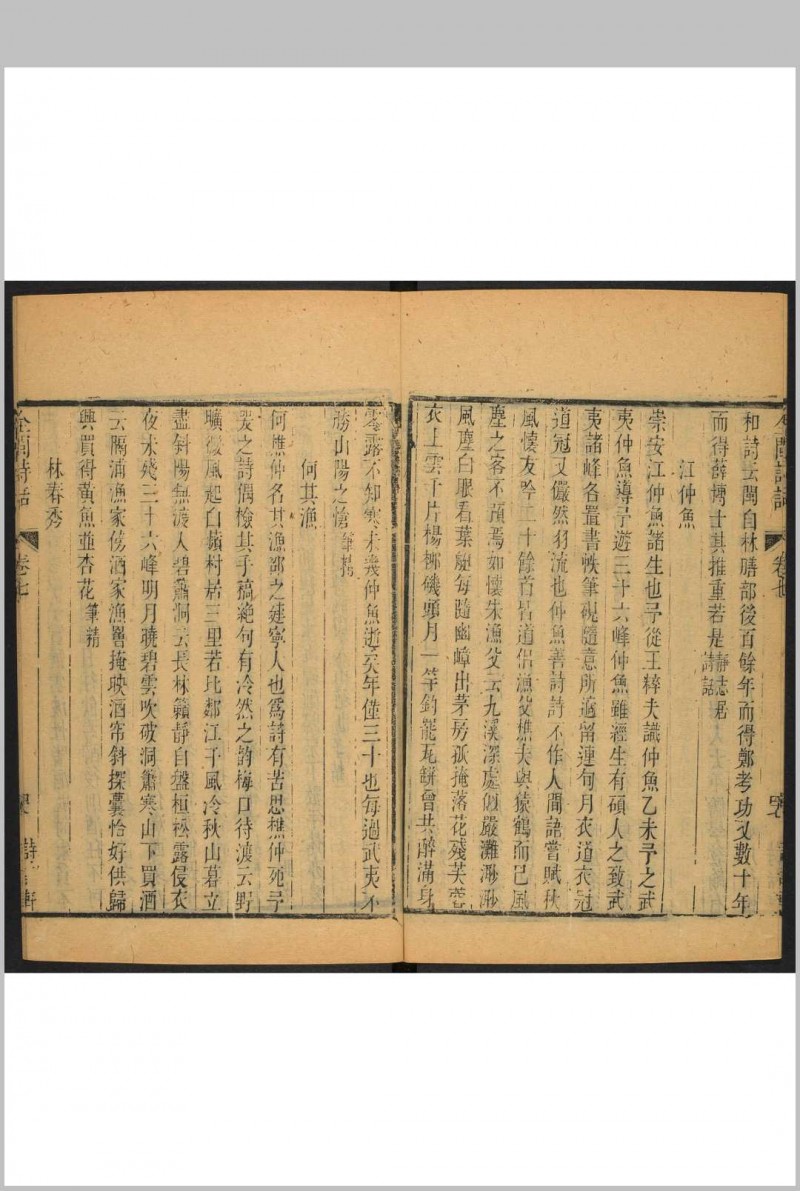 和詩云閩自林膳部後百餘年而得鄭考功又數十年
而得薛博士其推重若是靜志居詩話
江仲魚
崇安江仲魚諸生也予從王粹夫識仲魚乙未予之武
夷仲魚導予遊三十六峰仲魚雖經生有碩人之致武
夷諸峰各置書帙筆硯隨意所適留連旬月衣道衣冠
道冠又儼然羽流也仲魚善詩詩不作人間語嘗賦秋
風懷友吟二十餘首皆道侶漁父樵夫與猿鶴而已風
塵之客不預焉如懷朱漁父云九溪深處似嚴灘渺渺
風塵白眼看葉艇每隨幽嶂出茅房孤掩落花殘芙蓉
衣上雲千片楊柳磯頭月一竿釣罷瓦餅曾共醉滿身
零露不知寒未幾仲魚逝矣年僅三十也每過武夷不
勝山陽之愴筆精
何其漁
何樵仲名其漁邵之建寧人也為詩有苦思樵仲死予
哭之詩偶檢其手稿絕句有冷然之韵梅口待渡云野
曠微風起白蘋村居三里若比鄰江干風冷秋山暮立
盡斜陽無渡人碧蕭洞云長林籟靜自盤桓松露侵衣
夜未殘三十六峰明月曉碧雲吹破洞簫寒山下買酒
云隔浦漁家傍酒家漁罾掩映酒帘斜探囊恰好供歸
興買得黃魚並杏花筆精
林春秀
全閩詩話
卷七